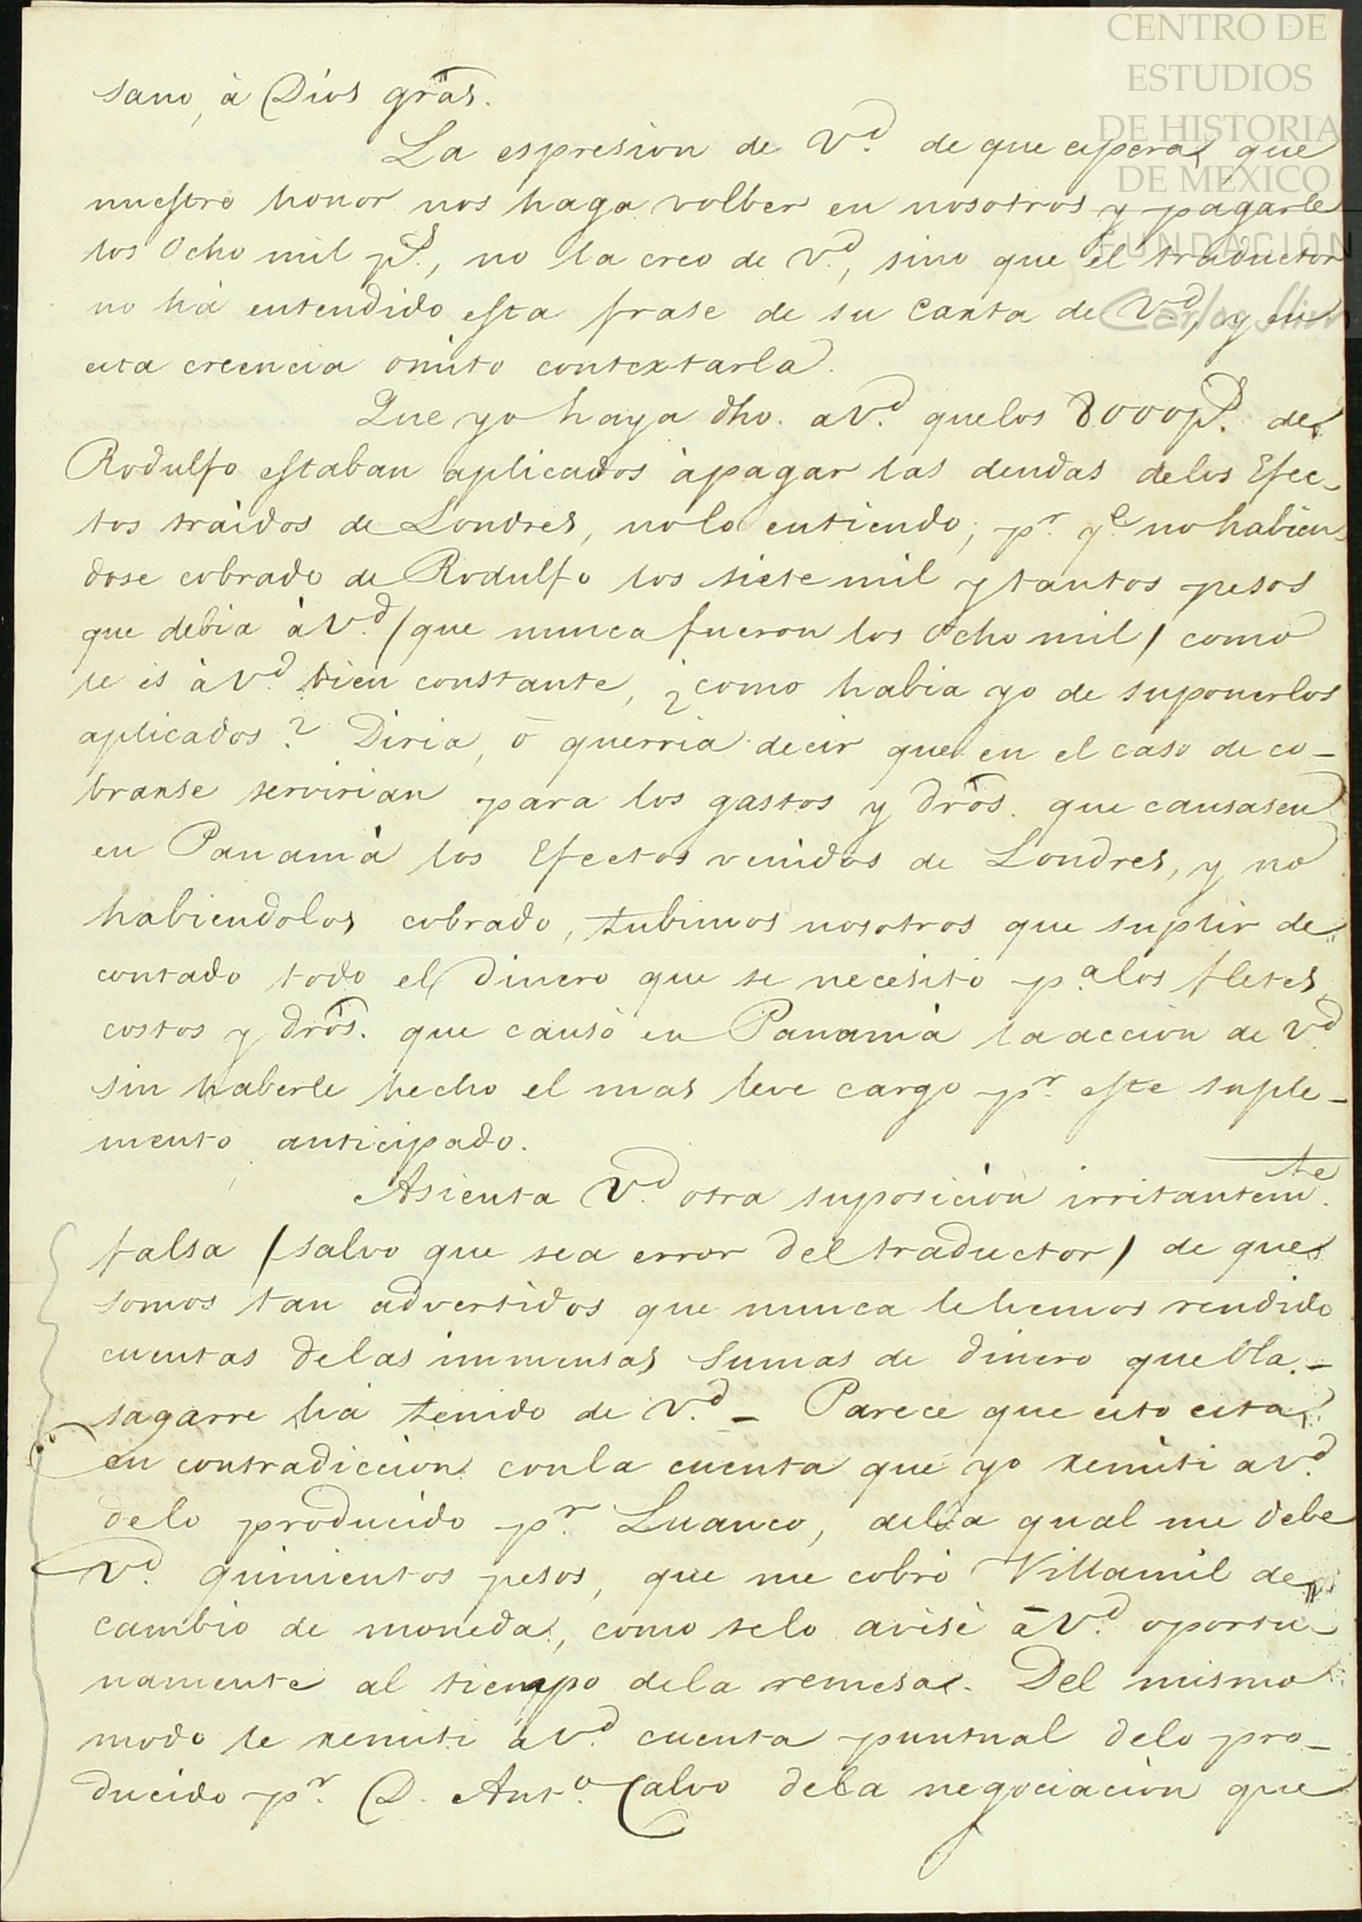 CENTRO DE
ESTUDIOS
DE HISTORIA
DE MEXICO
FUNDACIÓN
Carlos Slim
sano, à Dios grãs.
La espresion de Vd. de que espera, que
nuestro honor nos haga volber en nosotros y pagarle
los Ocho mil ps., no la creo de Vd., sino que el traductor
no há entendido esta frase de su Carta de Vd., y en
esta creencia omito contextarla.
Que yo haya dho. a Vd. que los 8000 ps. de
Rodulfo estaban aplicados à pagar las deudas delos Efec-
tos traidos de Londres, nolo entiendo, pr. qe. no habien
dose cobrado de Rodulfo los siete mil y tantos pesos
que debia à Vd. (que nunca fueron los Ocho mil) como
le es à Vd. bien constante, ¿como habia yo de suponerlos
aplicados? Diria, ò querria decir que en el caso de co-
branse servirian para los gastos y drõs. que causasen
en Panamà los Efectos venidos de Londres, y no
habiendolos cobrado, tubimos nosotros que suplir de
contado todo el dinero que se necesitó pa. los fletes
costos y drõs. que causò en Panamà la accion de Vd.
sin haberle hecho el mas leve cargo pr. este suple-
mento anticipado.
Asienta Vd. otra suposicion irritantemte.
falsa (salvo que sea error del traductor) de que
somos tan advertidos que nunca lehemos rendido
cuentas delas immensas Sumas de dinero que Bla-
sagarre há tenido de Vd. - Parece que esto esta
en contradiccion conla cuenta que yo remiti a Vd.
delo producido pr. Luanco, dela qual me debe
Vd. quinientos pesos, que me cobrò Villamil de
cambio de moneda, como selo avisé à Vd. oportu
namente al tiempo dela remesa. Del mismo
modo le remiti à Vd. cuenta puntual delo pro-
ducido pr. D. Anto. Calvo dela negociacion que